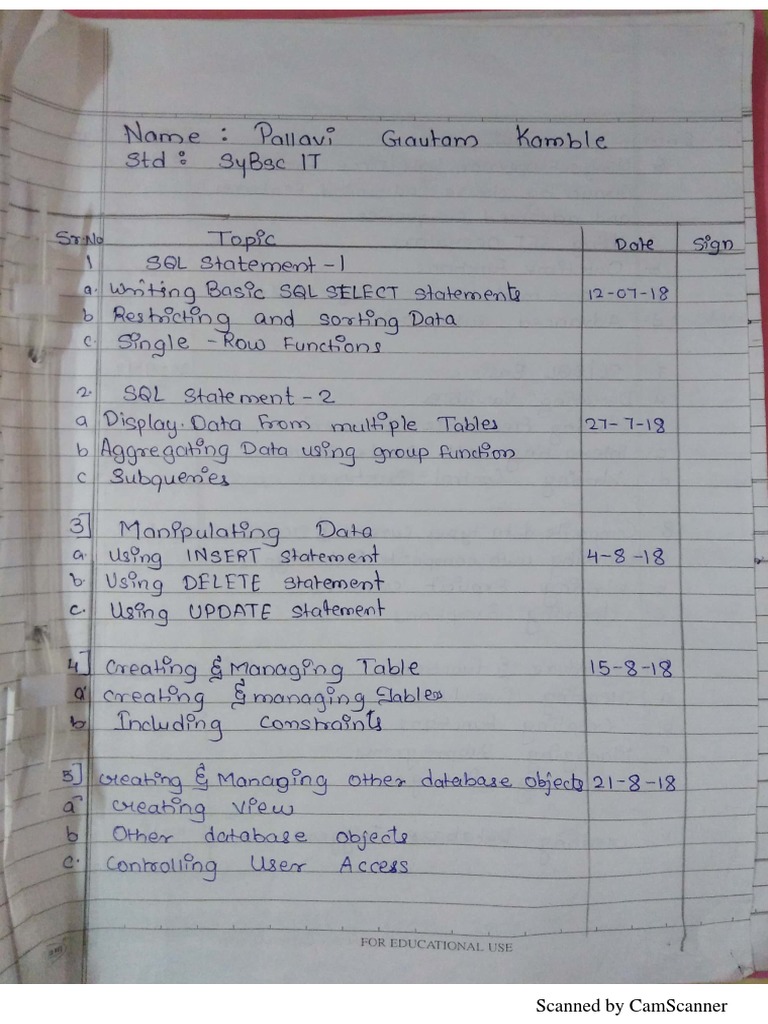 Name : Pallavi Gautam Kamble
Std : SyBsc IT
Sr.No Topic Date Sign
1 SQL Statement - 1
a. Writing Basic SQL SELECT Statements 12-07-18
b Restricting and sorting Data
c. Single - Row Functions
2. SQL Statement - 2
a Display Data From multiple Tables 27-7-18
b Aggregating Data using group function
c Subqueries
3] Manipulating Data
a. Using INSERT Statement 4-8-18
b. Using DELETE Statement
c. Using UPDATE Statement
4] Creating & Managing Table 15-8-18
a Creating & managing Tables
b Including Constraints
5] Creating & Managing other database objects 21-8-18
a Creating View
b Other database objects
c. Controlling User Access
FOR EDUCATIONAL USE
Scanned by CamScanner